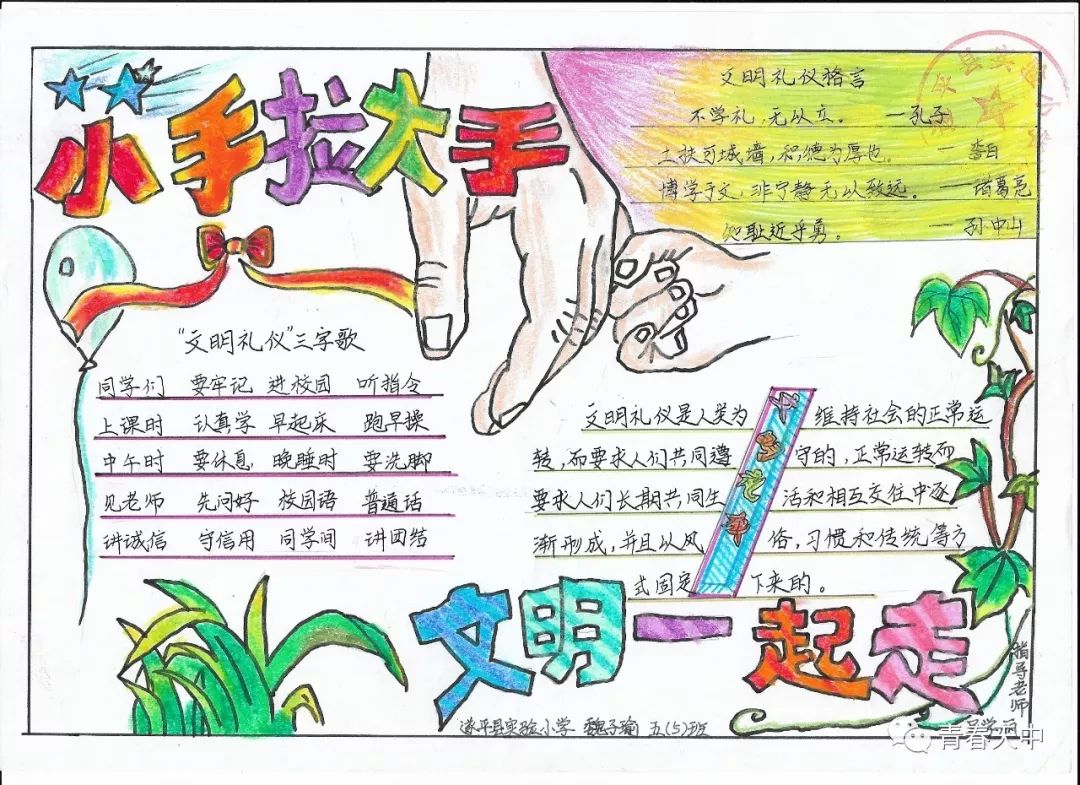 小手拉大手
文明礼仪格言
不学礼,无以立。 —孔子
土扶可城墙,积德为厚也。 — 李白
博学于文,非宁静无以致远。 —诸葛亮
知耻近乎勇。 —孙中山
“文明礼仪”三字歌
同学们 要牢记 进校园 听指令
上课时 认真学 早起床 跑早操
中午时 要休息 晚睡时 要洗脚
见老师 先问好 校园语 普通话
讲诚信 守信用 同学间 讲团结
文明礼仪是人类为 维持社会的正常运
转,而要求人们共同遵 守的,正常运转而
要求人们长期共同生 活和相互交往中逐
渐形成,并且以风 俗,习惯和传统等方
式固定 下来的。
文明一起走
遂平县实验小学 魏子瑜 五(5)班
指导老师
青春天中